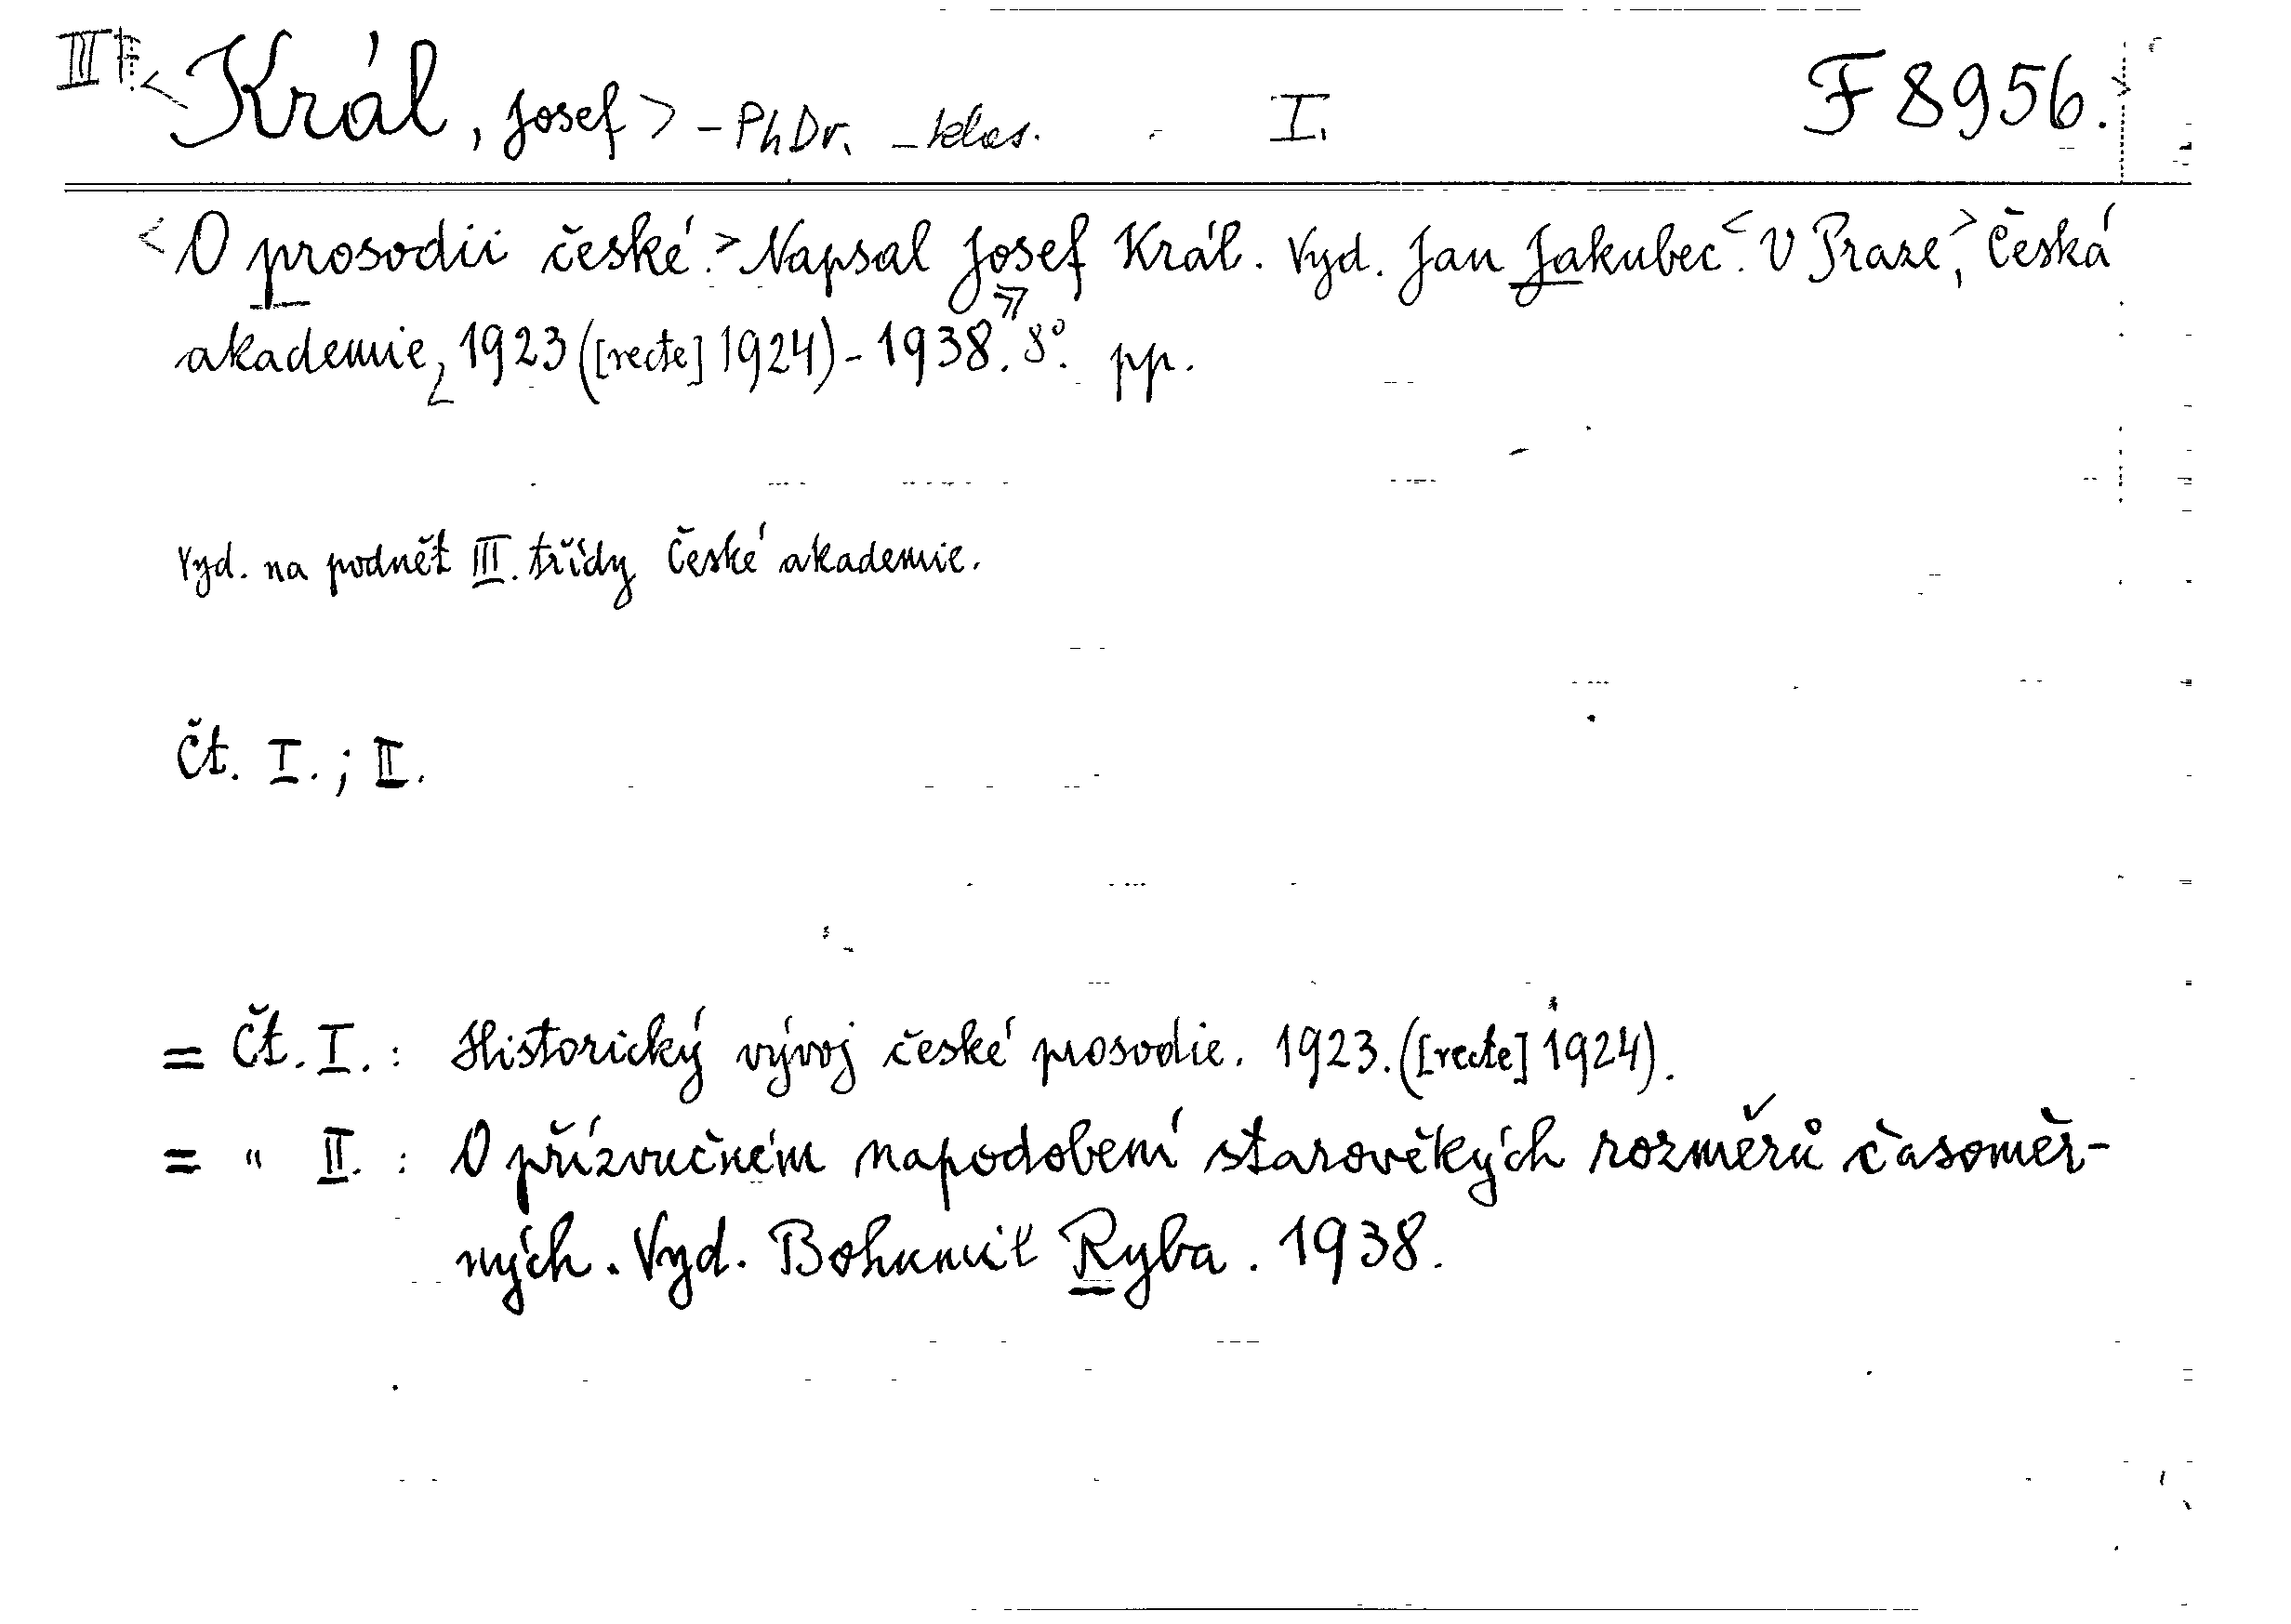 III <Král, Josef> - PhDr. - klas. I. F 8956.
<O prosodii české.> Napsal Josef Král. Vyd. Jan Jakubec. <V Praze,> Česká
akademie, 1923 ([recte] 1924) - 1938. 8°. pp.
Vyd. na podnět III. třídy České akademie.
Čt. I.; II.
= Čt. I. : Historický vývoj české prosodie. 1923. ([recte] 1924).
= " II. : O přízvučném napodobení starověkých rozměrů časoměr-
ných. Vyd. Bohumil Ryba. 1938.